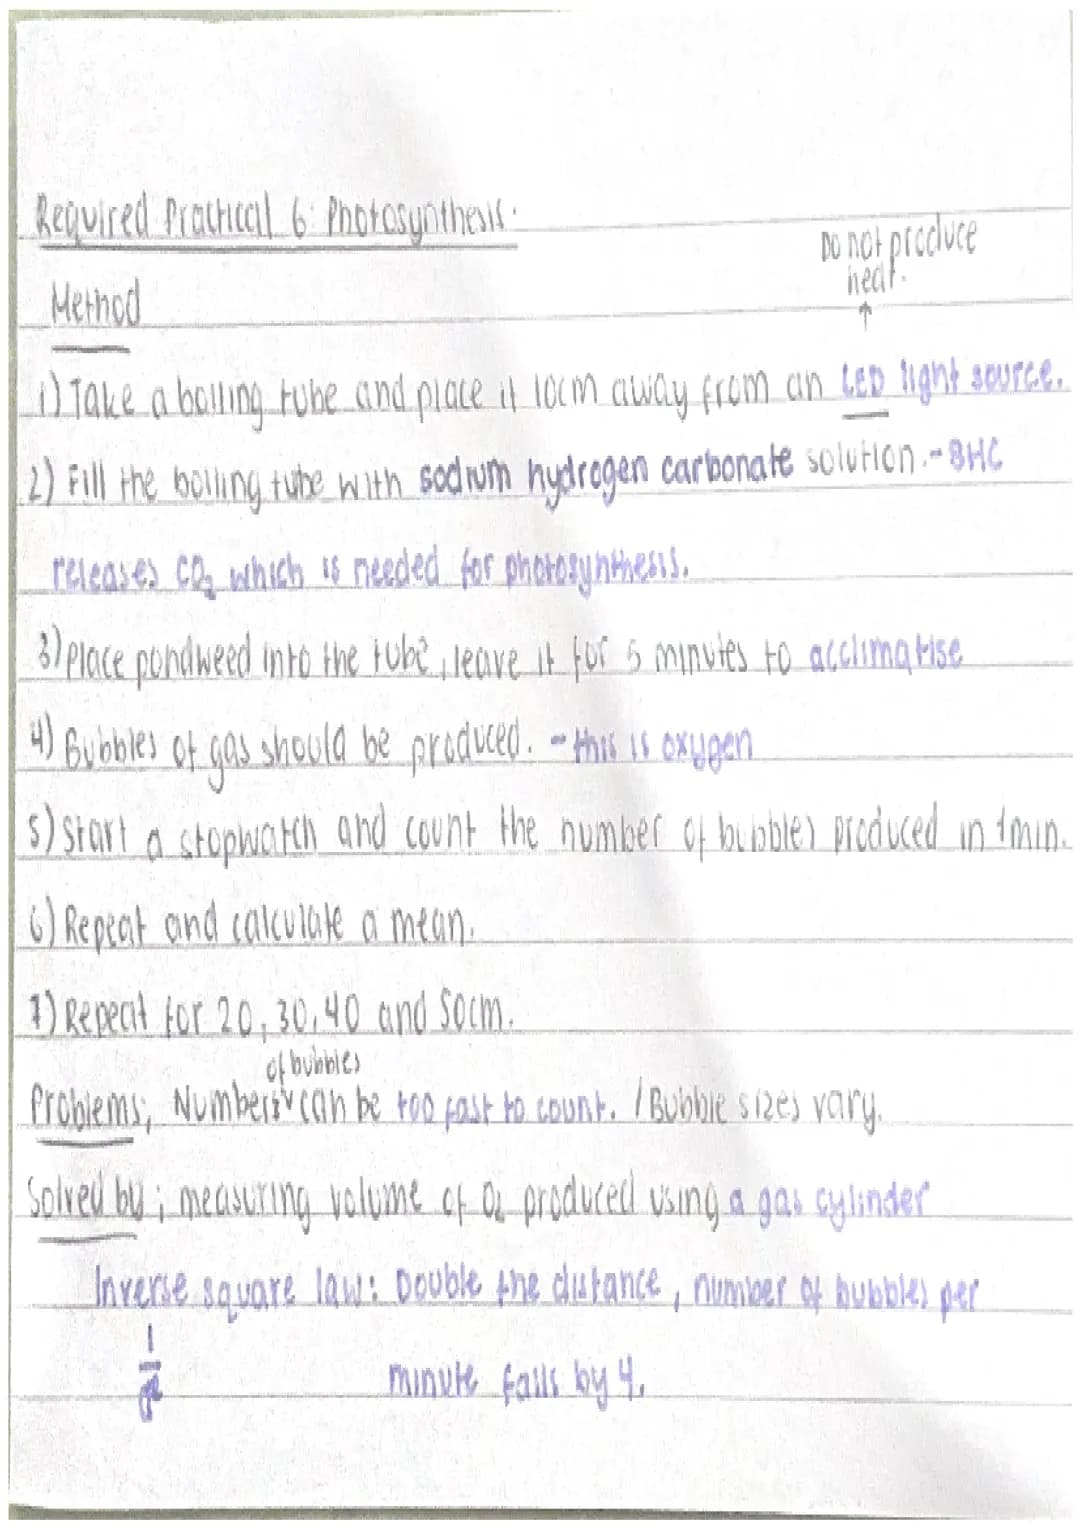 Required Practical 6: Photosynthesis.
Do not produce
heat.
↑
Method
1) Take a boiling tube and place it 10cm away from an LED light source.
2) Fill the boiling tube with sodium hydrogen carbonate solution. - BHC
releases CO₂ which is needed for photosynthesis.
3) Place pondweed into the tube, leave it for 5 minutes to acclimatise
4) Bubbles of gas should be produced. - this is oxygen
5) Start a stopwatch and count the number of bubbles produced in 1min.
6) Repeat and calculate a mean.
7) Repeat for 20, 30, 40 and 50cm.
of bubbles
Problems; Numbers can be too fast to count. / Bubble sizes vary.
Solved by; measuring volume of O₂ produced using a gas cylinder
Inverse square law: Double the distance, number of bubbles per
minute falls by 4.
1
d²